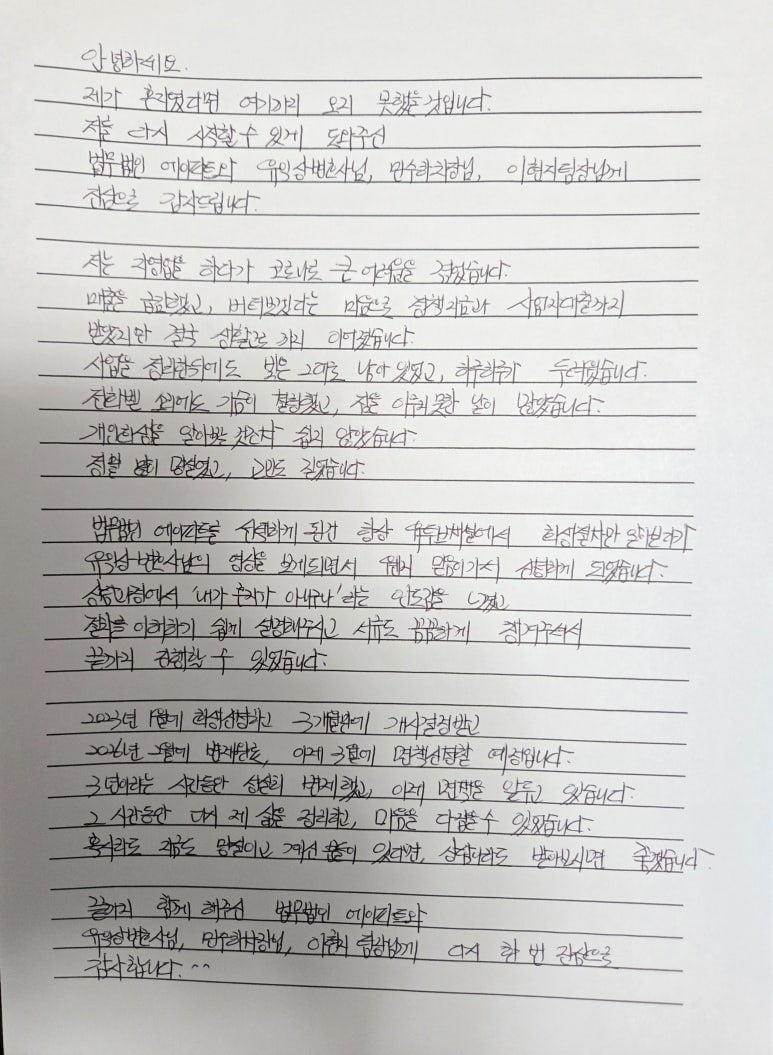 안녕하세요.
제가 혼자였다면 여기까지 오지 못했을것입니다.
저를 다시 시작할 수 있게 도와주신
법무법인 에이파트와 유익상변호사님, 민수하차장님, 이현지팀장님께
진심으로 감사드립니다.
저는 자영업을 하다가 코로나로 큰 어려움을 겪었습니다.
매출은 급감했고, 버텨보겠다는 마음으로 정책자금과 사업자대출까지
받았지만 결국 생활고로 까지 이어졌습니다.
사업을 정리한뒤에도 빚은 그대로 남아 있었고, 하루하루가 두려웠습니다.
전화벨 소리에도 가슴이 철렁했고, 잠을 이루지 못한 날이 많았습니다.
개인회생을 알아보는 것조차 쉽지 않았습니다.
정말 많이 망설였고, 고민도 길었습니다.
법무법인 에이파트를 선택하게 된건 항상 유튜브채널에서 회생절차만 알아보다가
유익상 변호사님의 영상을 보게되면서 왠지 믿음이가서 신청하게 되었습니다.
상담과정에서 '내가 혼자가 아니구나' 라는 안도감을 느꼈고
절차를 이해하기 쉽게 설명해주시고 서류도 꼼꼼하게 챙겨주셔서
끝까지 진행할 수 있었습니다.
2023년 1월에 회생신청하고 3개월만에 개시결정받고
2026년 2월에 변제완료, 이제 3월에 면책신청할 예정입니다.
3년이라는 시간동안 성실히 변제했고, 이제 면책을 앞두고 있습니다.
그 시간동안 다시 제 삶을 정리하고, 마음을 다잡을수 있었습니다.
혹시라도 지금도 망설이고 계신 분들이 있다면, 상담이라도 받아보시면 좋겠습니다.
끝까지 함께 해주신 법무법인 에이파트와
유익상변호사님, 민수하차장님, 이현지 팀장님께 다시 한 번 진심으로
감사합니다. ^^